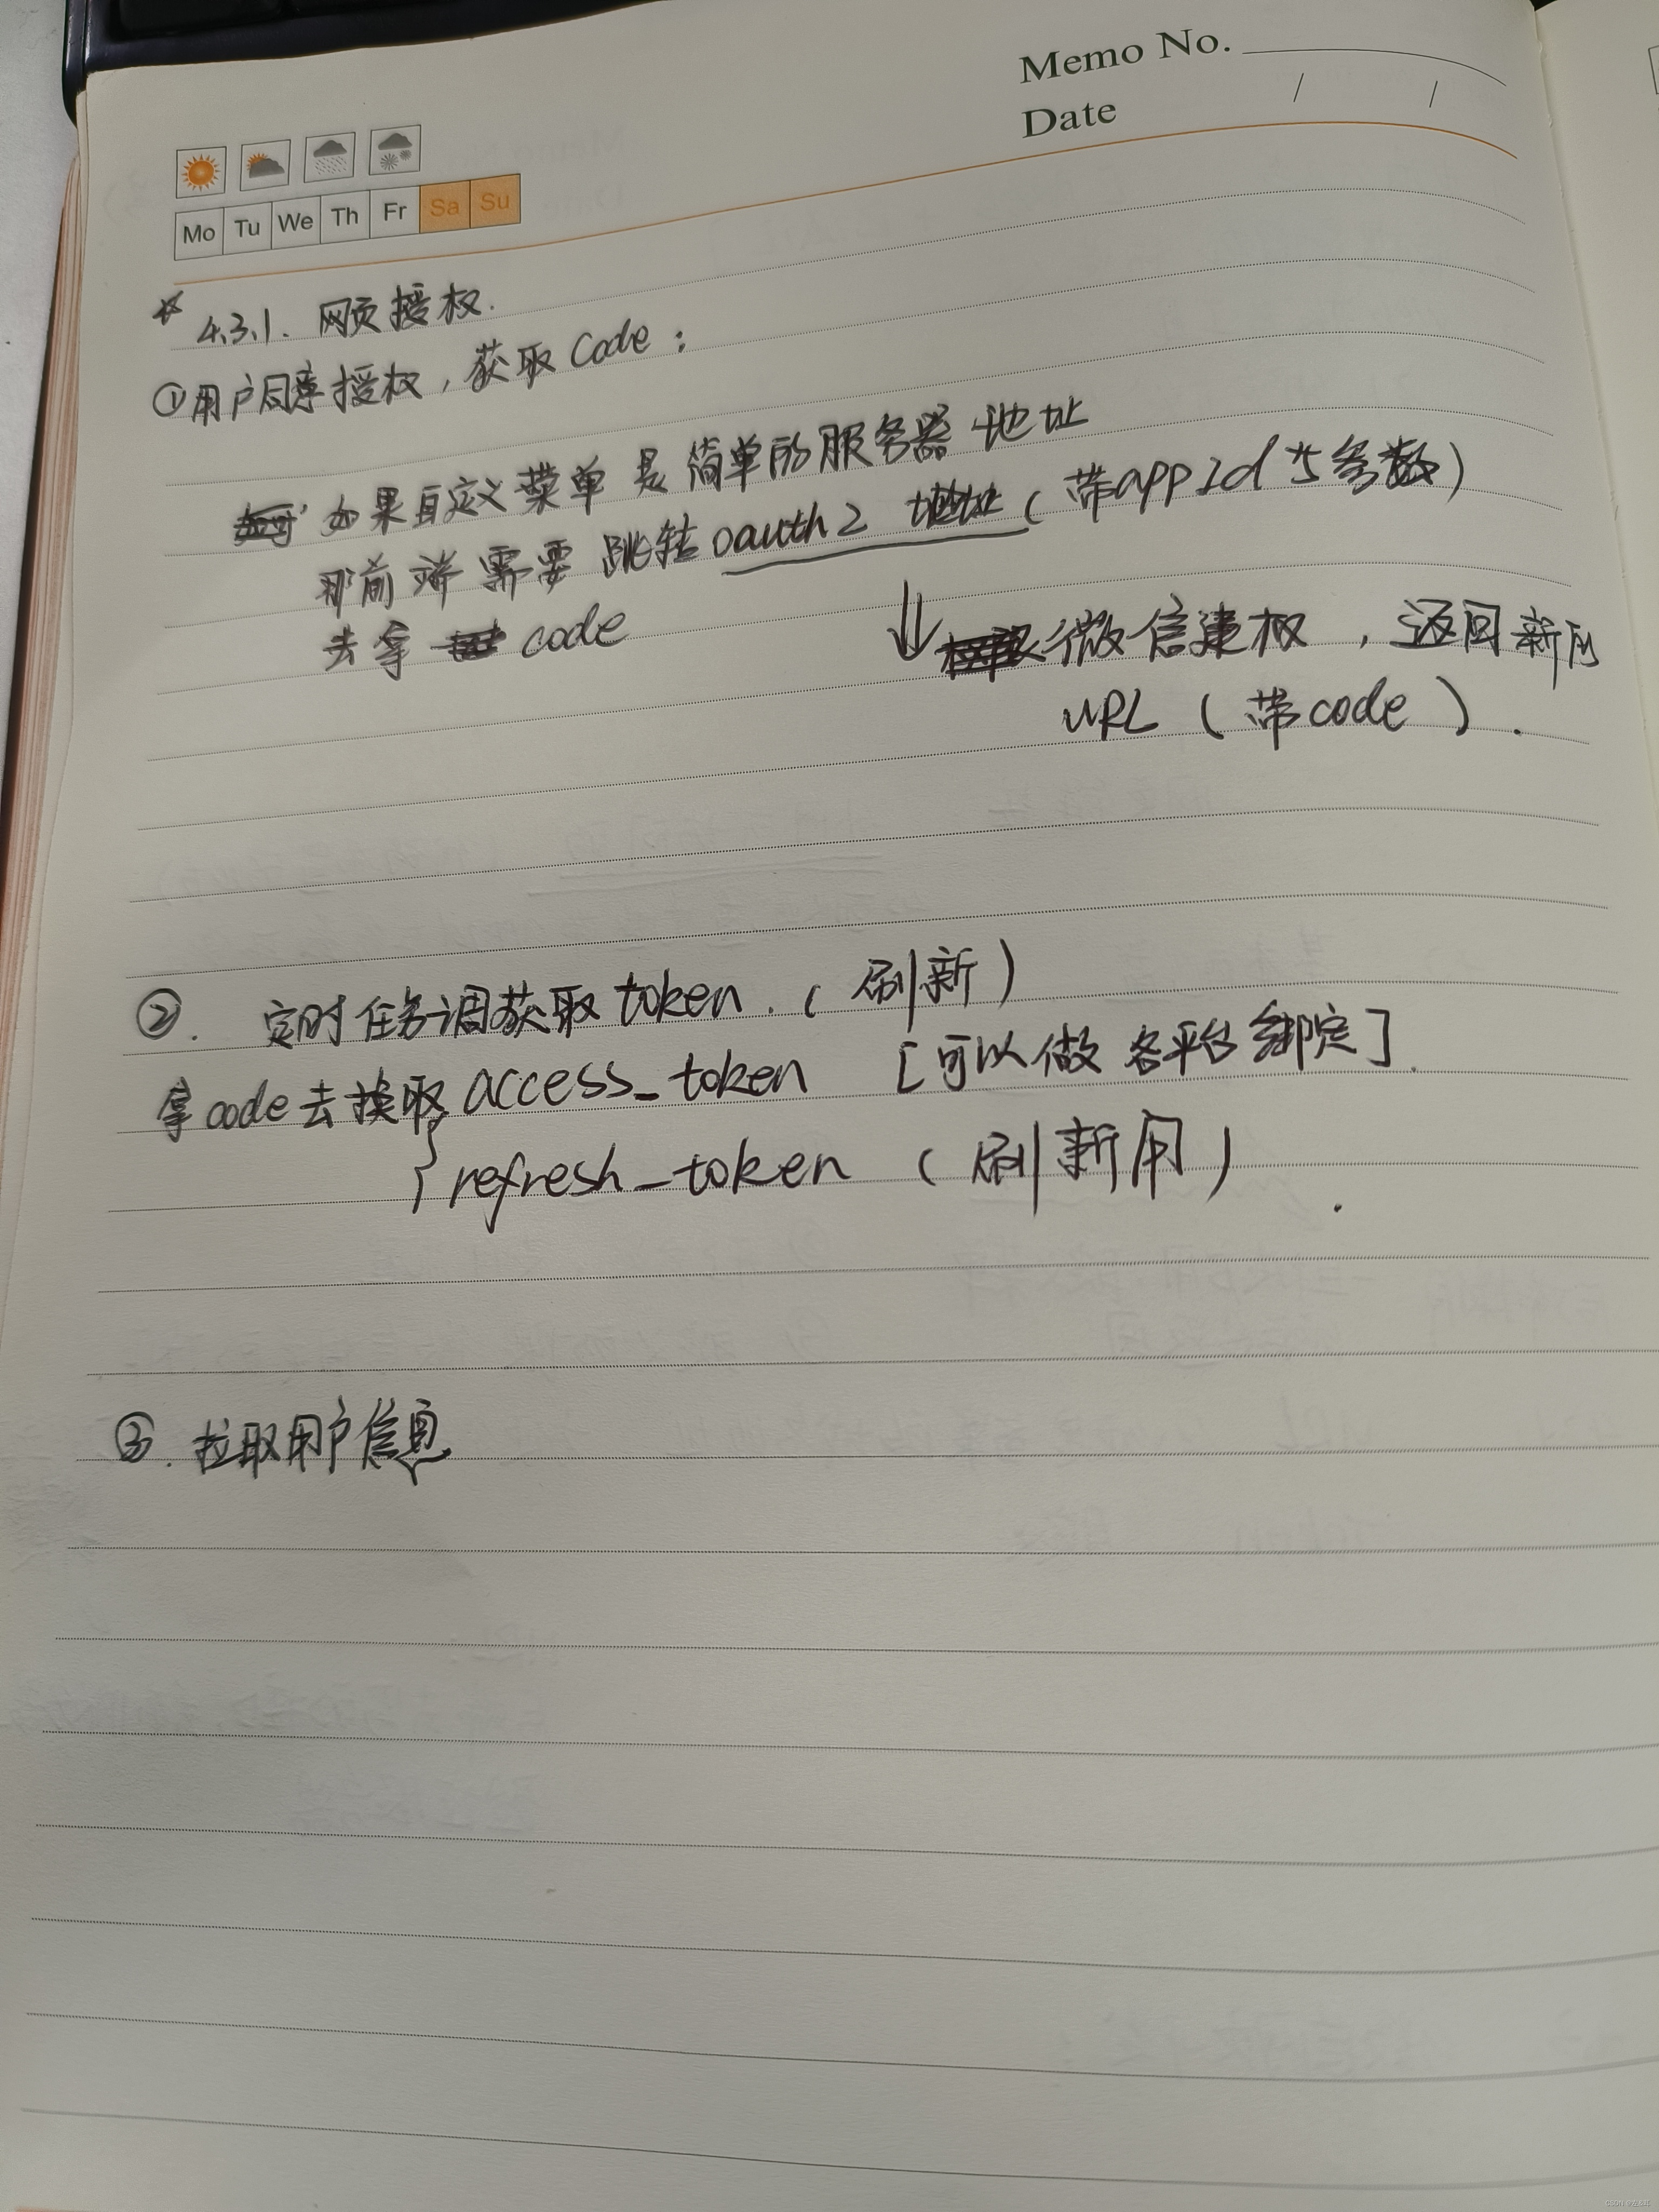 Memo No.
Date / /
Mo Tu We Th Fr Sa Su
☆ 4.3.1. 网页授权.
①用户同意授权，获取Code：
如果自定义菜单是简单的服务器地址
那前端需要跳转oauth2 地址（带appId等参数）
去拿 code
⇓ 微信建权，返回新的
URL（带code）.
②. 定时任务调获取token.（刷新）
拿code去换取access_token [可以做各平台绑定].
{refresh_token（刷新用）.
③. 拉取用户信息